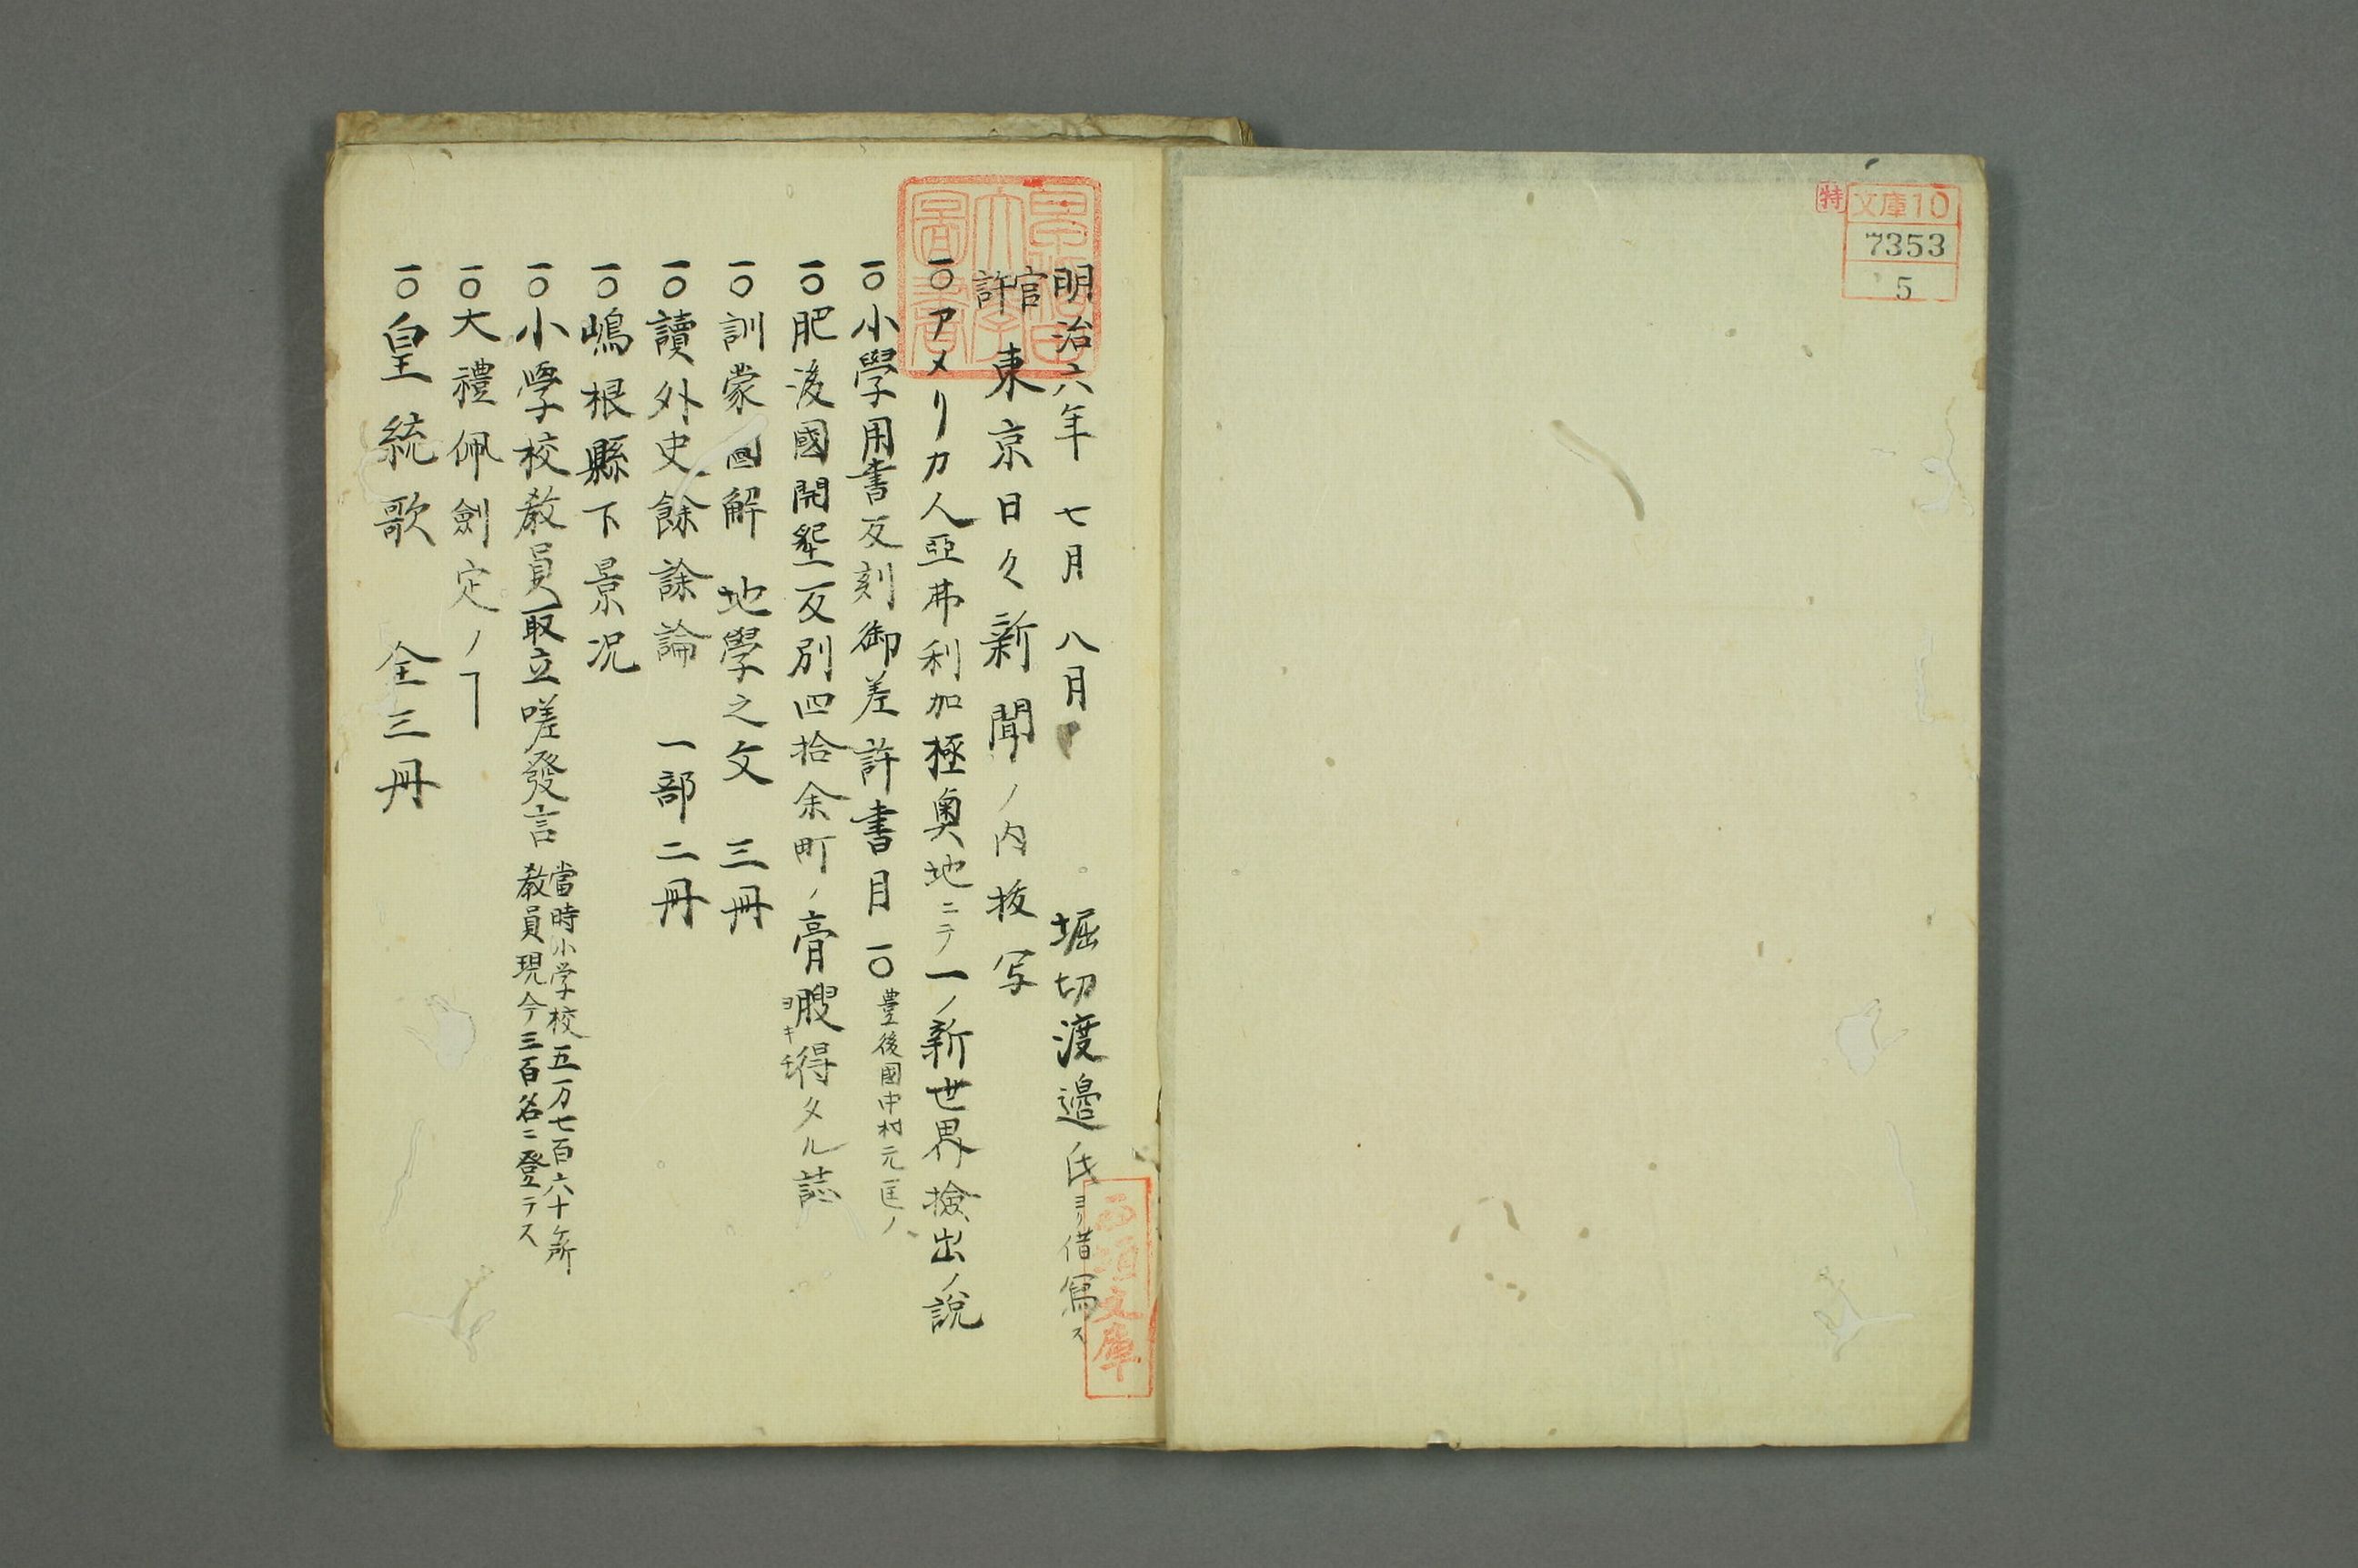 特
文庫10
7353
5
明治六年 七月 八月 堀切渡邉氏ヨリ借寫ス
官許 東京日々新聞ノ内抜写
一〇アメリカ人亞弗利加極奥地ニテ一ノ新世界撿出ノ説
一〇小學用書反刻御差許書目 一〇豊後國中村元匡ノ
一〇肥後國開墾反別四拾余町ノ膏腴得タル誌
ヨキチ
一〇訓蒙圖解 地學之文 三冊
一〇讀外史餘論 一部二冊
一〇嶋根縣下景况
一〇小學校教員取立嗟發言 當時小学校五万七百六十ケ所
教員現今三百名ニ登ラス
一〇大禮佩劍定ノヿ
一〇皇統歌 全三冊
早稲田大学図書
文庫